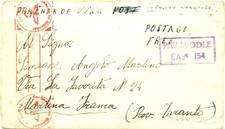 PRISONER OF WAR POST
POSTAGE
FREE
Al Signor
Simone Angelo Martino
Via La Favorita N. 24
Martina Franca
(Prov. Taranto)
P.W. MIDDLE
EAST 154